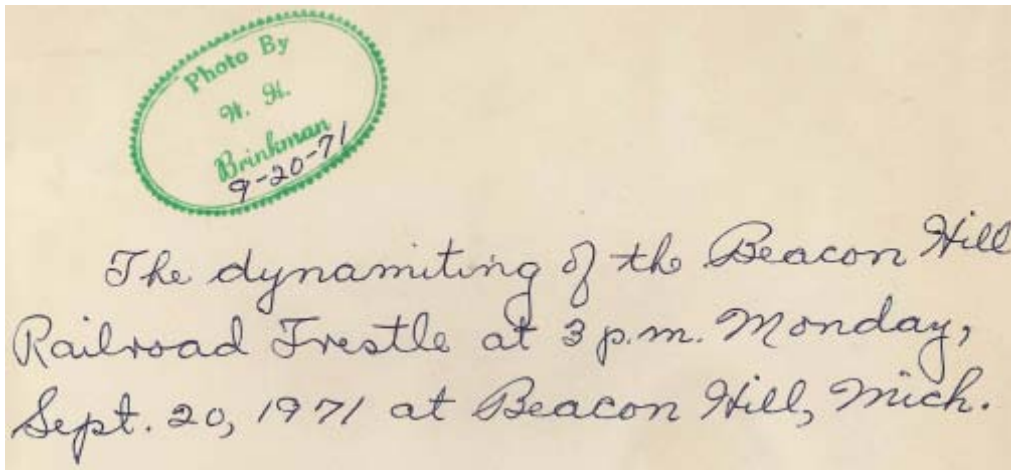 Photo By
W. H.
Brinkman
9-20-71
The dynamiting of the Beacon Hill
Railroad Trestle at 3 p.m. Monday,
Sept. 20, 1971 at Beacon Hill, Mich.